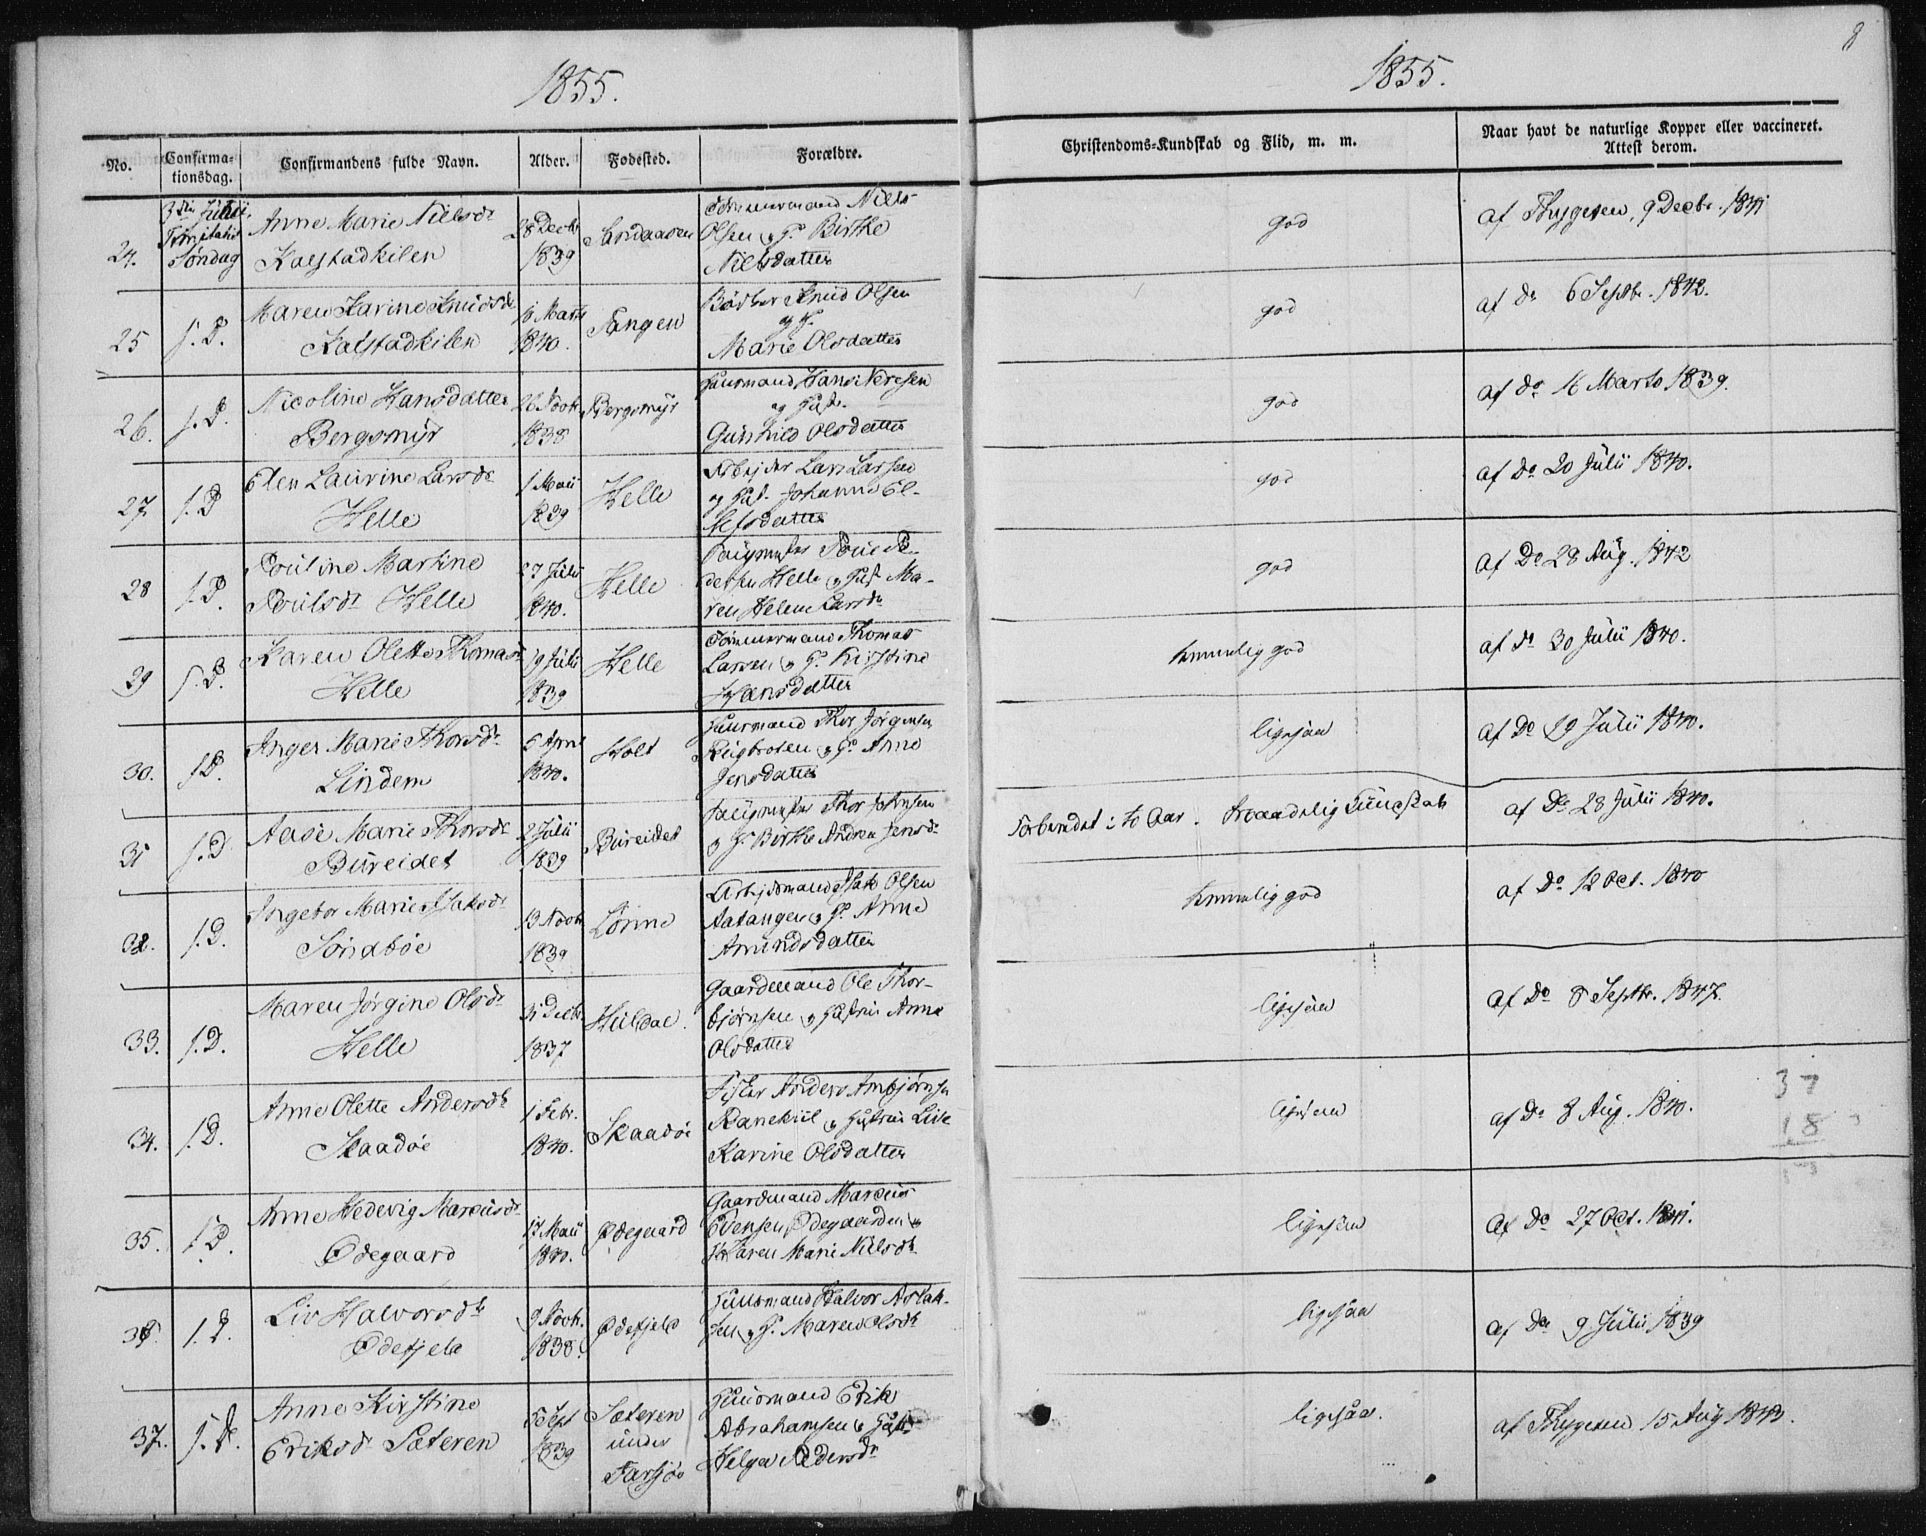 8
1855.
1855.
No.
Confirma-
tionsdag.
Confirmandens fulde Navn.
Alder.
Fødested.
Forældre.
Christendoms-Kundskab og Flid, m. m.
Naar havt de naturlige Kopper eller vaccineret.
Attest derom.
24.
Trinitatis
Søndag
Anne Marie Nielsdr
Kalstadkilen
28 Decbr
1839
Sandaasen
Tømmermand Niels
Olsen og H. Birthe
Nielsdatter
god
af Thygesen, 9 Decbr. 1841
25
s. D.
Maren Karine Knudsdr
Kalstadkilen
10 Marts
1840.
Tangen
Bødker Knud Olsen
og H.
Marie Olsdatter
god
af do 6 Septbr. 1842.
26.
s. D.
Nicoline Hansdatter
Bergsmyr
26 Novbr
1838
Bergsmyr
Huusmand Hans Neresen
og Hust.
Gunhild Olsdatter
god
af do 16 Marts 1839.
27
s. D
Elen Laurine Larsdr
Helle
1 Maii
1839
Helle
Arbejder Lars Larsen
og Hust. Johanne El-
lefsdatter
god
af do 20 Julii 1840.
28
s. D.
Pouline Martine
Poulsdr Helle
27 Julii
1840.
Helle
Poul Pe-
dersen Helle og Hust Ma-
ren Helene Larsdr
god
af Do 28 Aug. 1842
29
s. D.
Karen Olette Thomasdr
Helle
19 Julii
1839
Helle
Tømmermand Thomas
Larsen og H. Kirstine
Hansdatter
temmelig god
af do 30 Julii 1840.
30.
s D.
Inger Marie Thorsdr
Lindem
5 April
1840.
Holt
Huusmand Thor Jørgensen
Rugbroten og H. Anne
Jensdatter
ligesaa
af Do 29 Julii 1840.
31
s. D
Aase Marie Thorsdr
Bureidet
2 Julii
1839
Bureidet
Thor Johnsen
og H. Birthe Andrea Jensdr
Forberedet i to Aar.
af Do 28 Julii 1840.
32.
s. D.
Ingebor Marie Isaksdr
Søndbøe
13 Novbr
1839
Lønne
Arbejdsmand Isak Olsen
Aatangen og H. Anne
Amundsdatter
temmelig god
af Do 12 Oct. 1840
33.
s. D.
Maren Jørgine Olsdr
Helle
31 Decbr
1837
Huldal.
Gaardmand Ole Thor-
bjørnsen og Hustrue Anne
Olsdatter
ligesaa
af Do 8 Septbr. 1847.
34.
s. D.
Anne Olette Andersdr
Skaadøe
1 Febr.
1840.
Skaadøe
Fisker Anders Ambjørnsen
Ranekiil og Hustrue Lise
Karine Olsdatter
ligesaa
af Do 3 Aug. 1840.
37
18
35.
s D.
Anne Hedevig Marcusdr
Ødegaard
17 Maii
1840.
Ødegaard
Gaardmand Marcus
Evensen Ødegaarden og
Karen Marie Nielsdr
ligesaa
af Do 27 Oct. 1841.
36.
s. D.
Liv Halvorsdr
Ødefjeld
9 Novbr.
1838.
Ødefjeld
Huusmand Halvor Aslak-
sen og H. Maren Olsdr
ligesaa
af Do 9 Julii 1839
37.
s. D.
Anne Kirstine
Eriksdr Sæteren
5 Sept
1839
Sæteren
under
Farsjøe
Huusmand Erik
Abrahamsen og Hust.
Helga Pedersdr
ligesaa.
af Thygesen 15 Aug 1843.